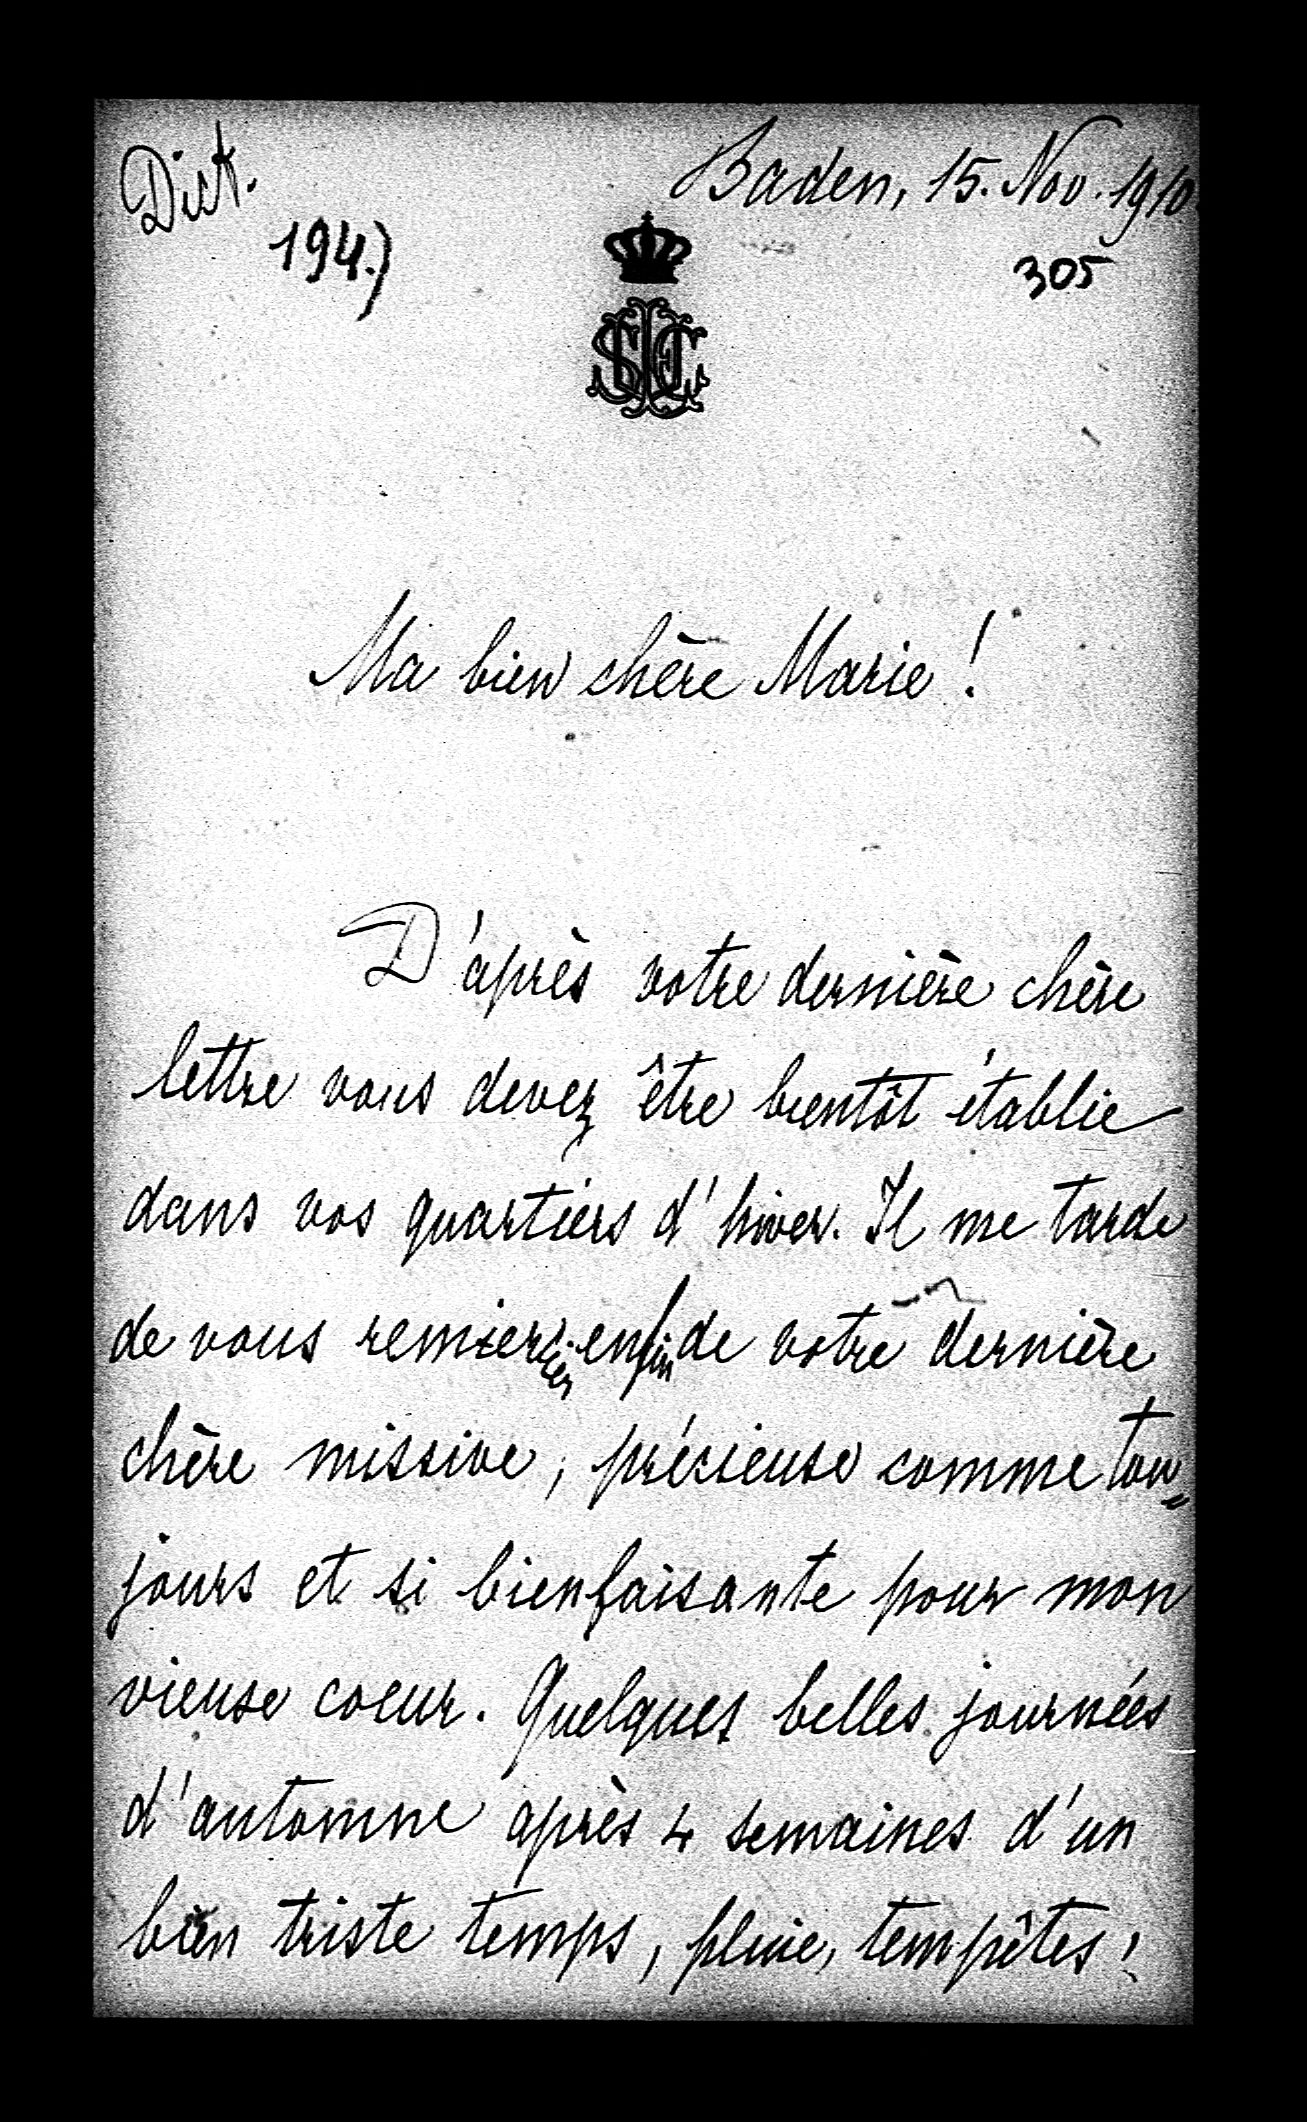 Dict.
Baden, 15. Nov. 1910
194.)
305
Ma bien chère Marie!
D'après votre dernière chère
lettre vous devez être bientôt établie
dans vos quartiers d'hiver. Il me tarde
de vous remiercier enfin de votre dernière
chère missive, précieuse comme tou=
jours et si bienfaisante pour mon
vieuse coeur. Quelques belles journées
d'automne après 4 semaines d'un
bien triste temps, pluie, tempêtes!